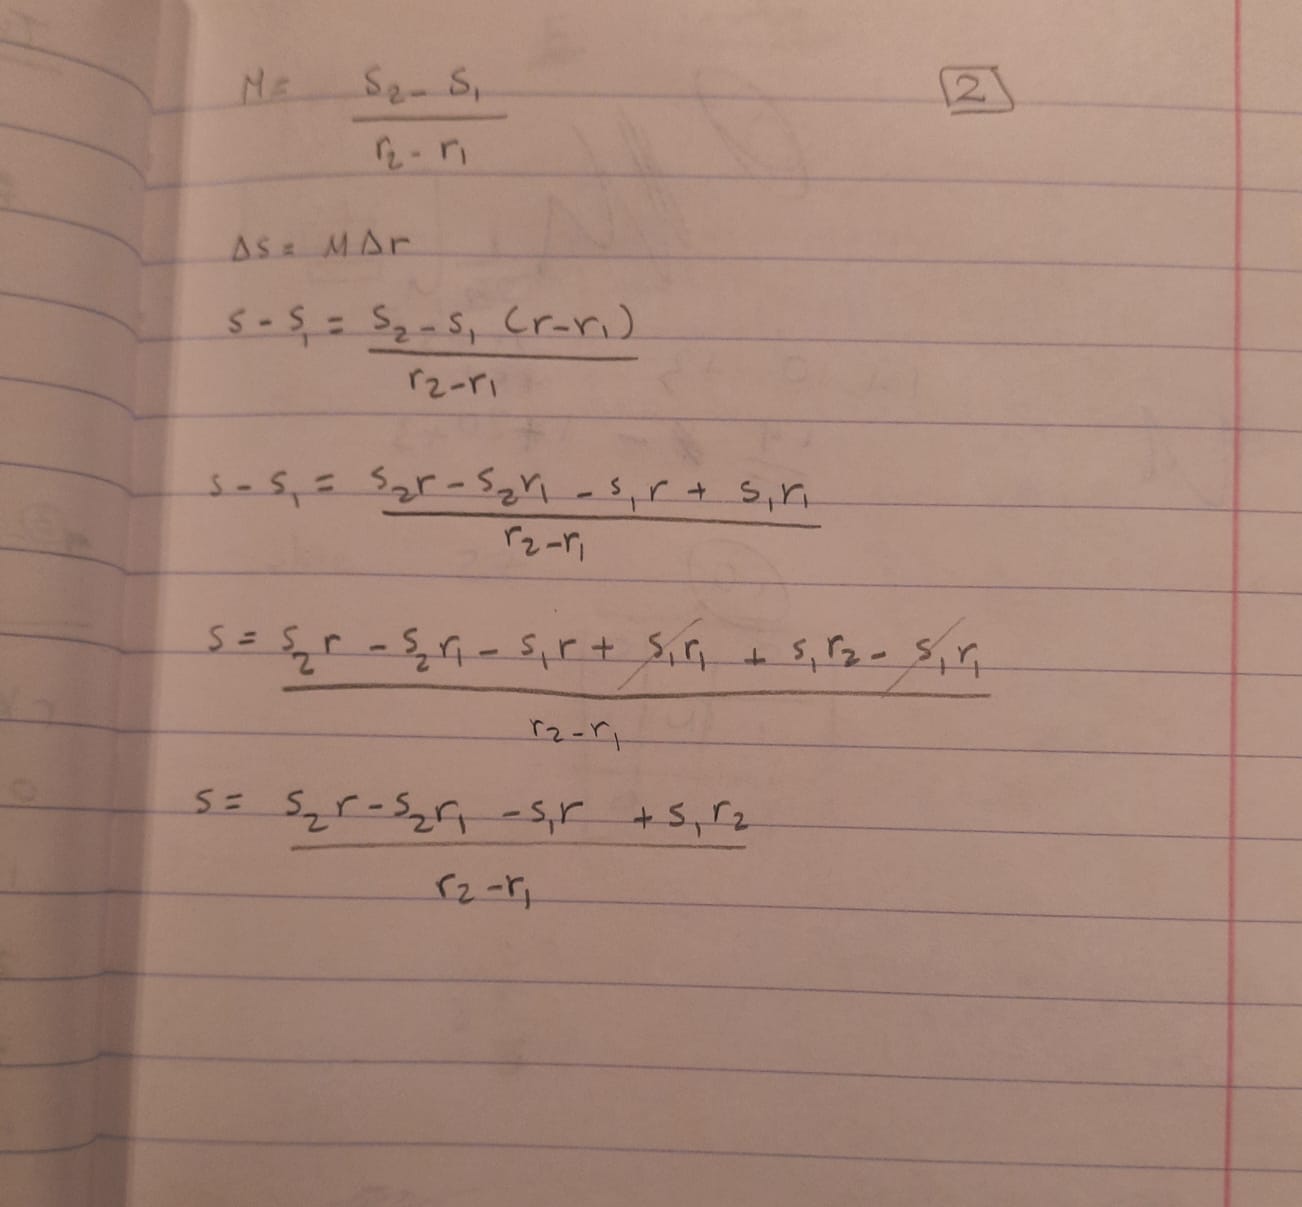 M = S₂ - S₁ / r₂ - r₁
[2]
ΔS = M Δr
S - S₁ = S₂ - S₁ (r - r₁) / r₂ - r₁
S - S₁ = S₂r - S₂r₁ - S₁r + S₁r₁ / r₂ - r₁
S = S₂r - S₂r₁ - S₁r + S₁r₁ + S₁r₂ - S₁r₁ / r₂ - r₁
S = S₂r - S₂r₁ - S₁r + S₁r₂ / r₂ - r₁